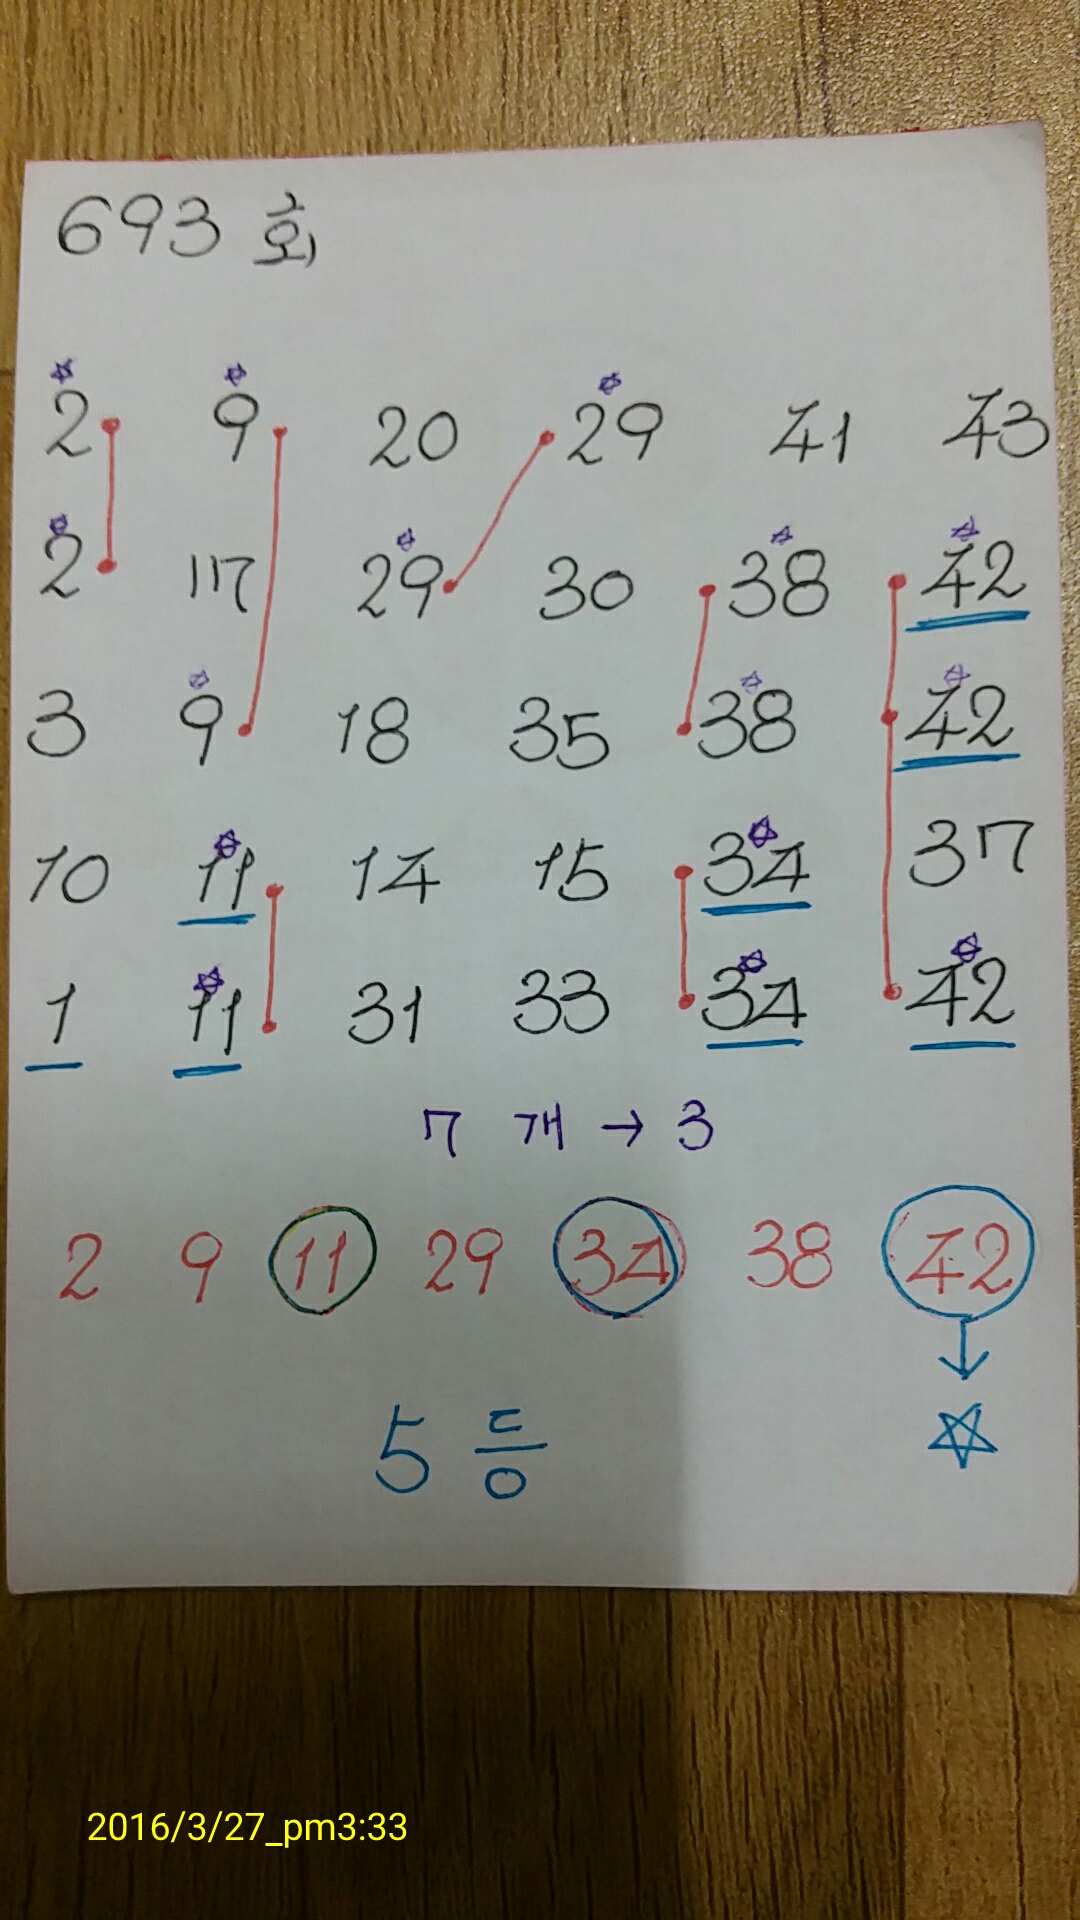 693 회
2 9 20 29 41 43
2 17 29 30 38 42
3 9 18 35 38 42
10 11 14 15 34 37
1 11 31 33 34 42
7 개 → 3
2 9 11 29 34 38 42
5 등
2016/3/27_pm3:33